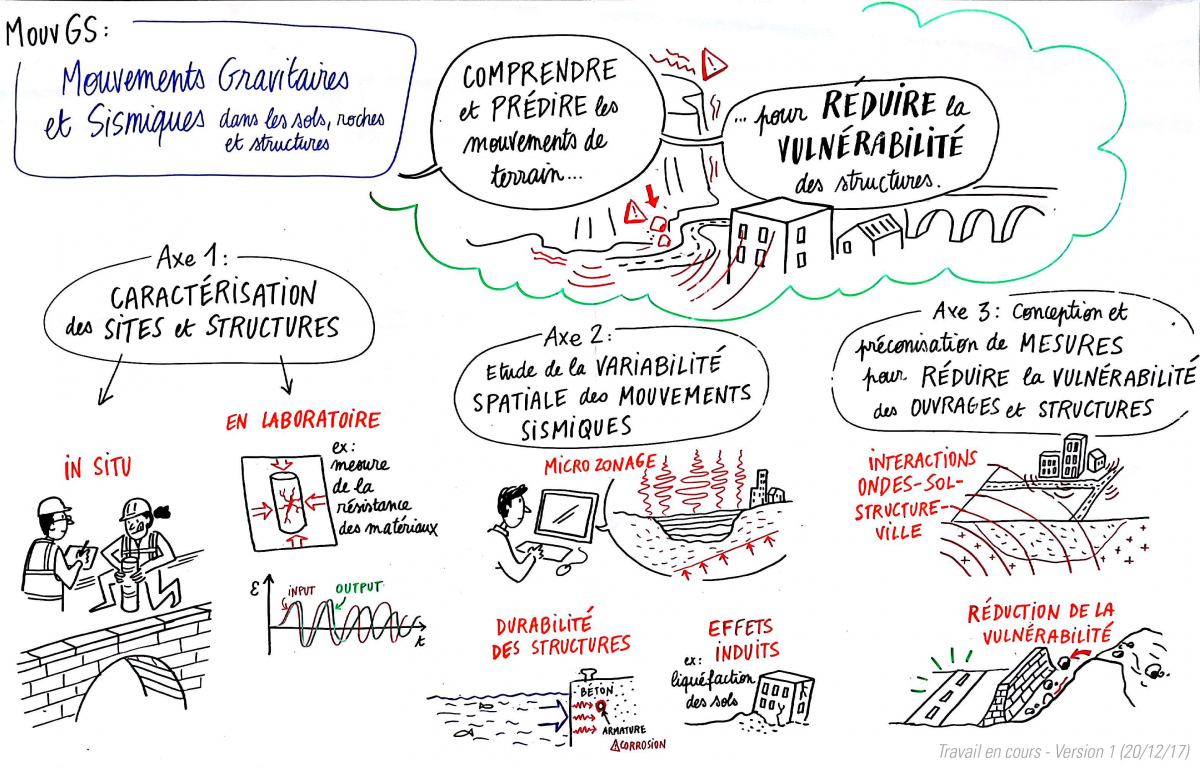 MOUVGS:
Mouvements Gravitaires
et Sismiques dans les sols, roches
et structures
COMPRENDRE
et PRÉDIRE les
mouvements de
terrain...
... pour RÉDUIRE la
VULNÉRABILITÉ
des structures.
Axe 1:
CARACTÉRISATION
des SITES et STRUCTURES
IN SITU
EN LABORATOIRE
ex:
mesure
de la
résistance
des matériaux
ε
INPUT
OUTPUT
t
Axe 2:
Etude de la VARIABILITÉ
SPATIALE des MOUVEMENTS
SISMIQUES
MICRO ZONAGE
DURABILITÉ
DES STRUCTURES
BÉTON
ARMATURE
CORROSION
EFFETS
INDUITS
ex:
liquéfaction
des sols
Axe 3: Conception et
préconisation de MESURES
pour RÉDUIRE la VULNÉRABILITÉ
des OUVRAGES et STRUCTURES
INTERACTIONS
ONDES-SOL-
STRUCTURE-
VILLE
RÉDUCTION DE LA
VULNÉRABILITÉ
Travail en cours - Version 1 (20/12/17)